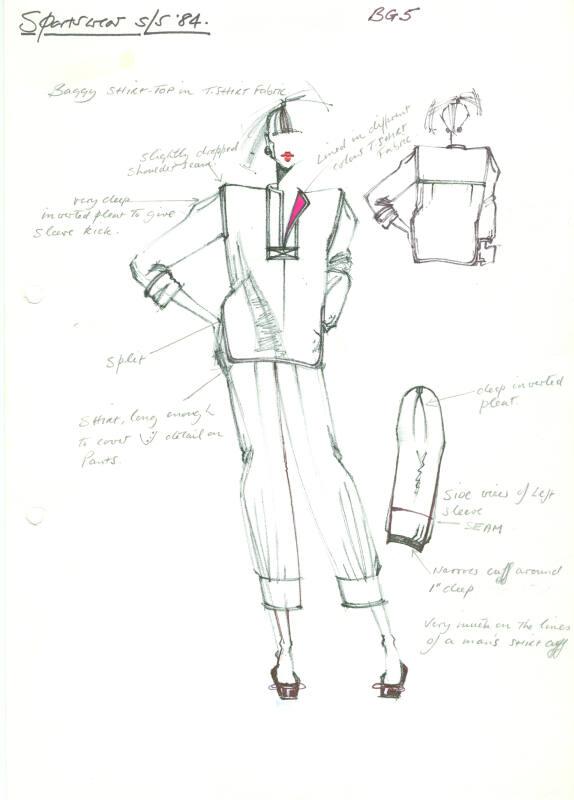 Sportswear S/S '84.
BG5
Baggy SHIRT-TOP in T.SHIRT FABRIC
slightly dropped
shoulder seam.
Lined in different
colour T.SHIRT
Fabric
very deep
inverted pleat to give
sleeve kick.
Split
SHIRT, long enough
to cover detail on
Pants.
deep inverted
pleat
Side view of Left
sleeve
SEAM
Narrow cuff around
1" deep
Very much on the lines
of a man's SHIRT cuff